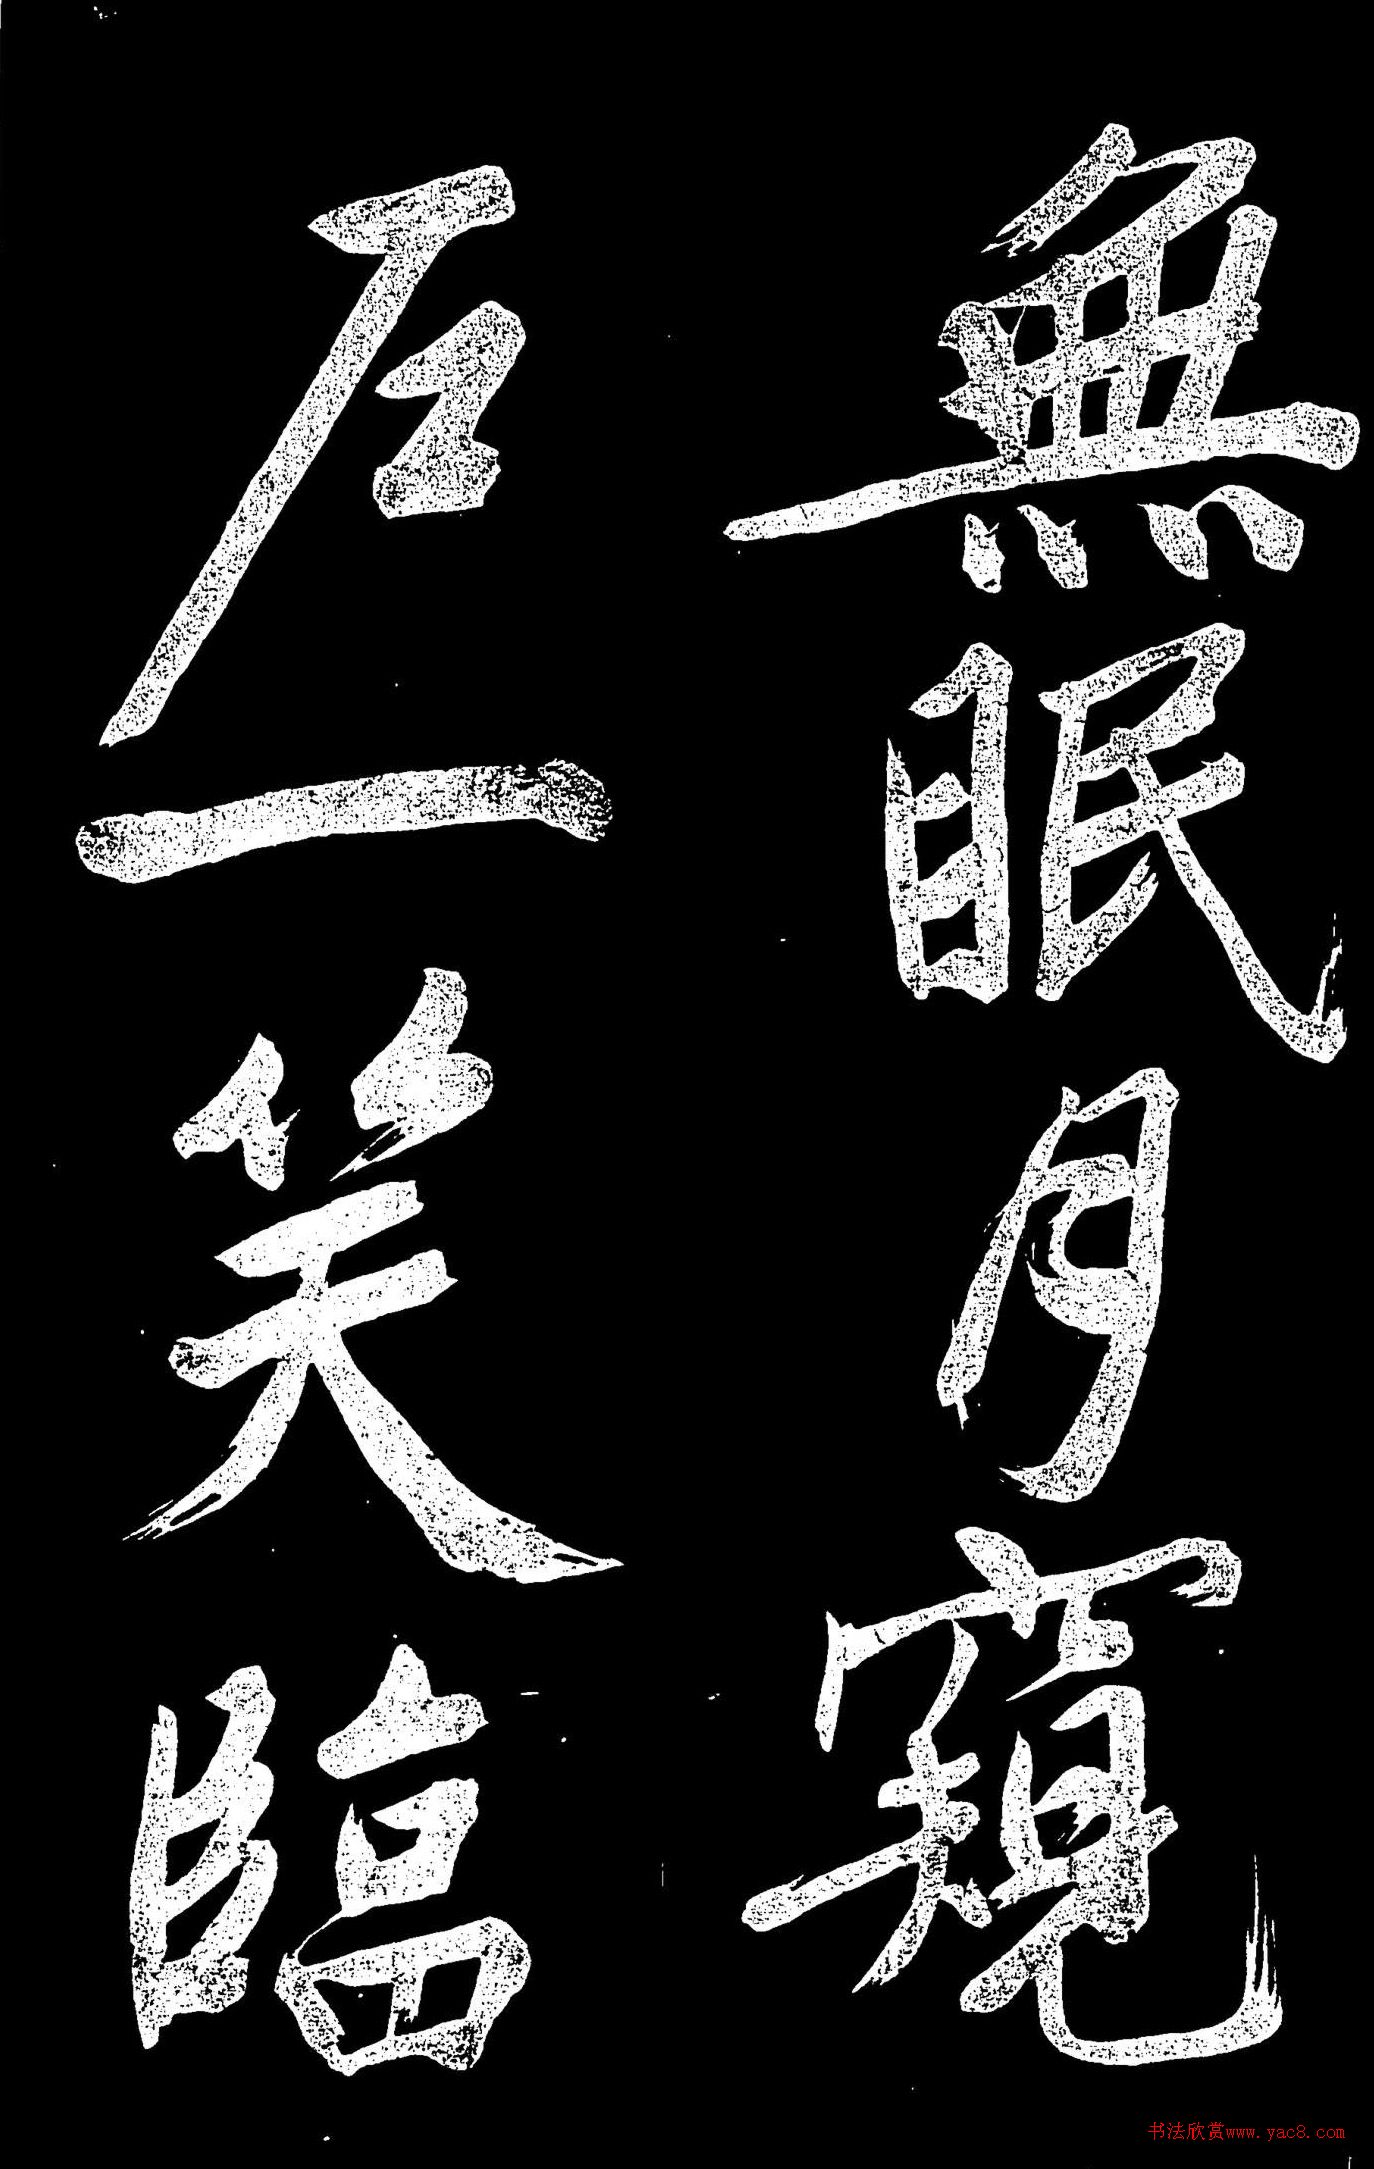 無眠月窺
戶一笑臨
书法欣赏www.yac8.com